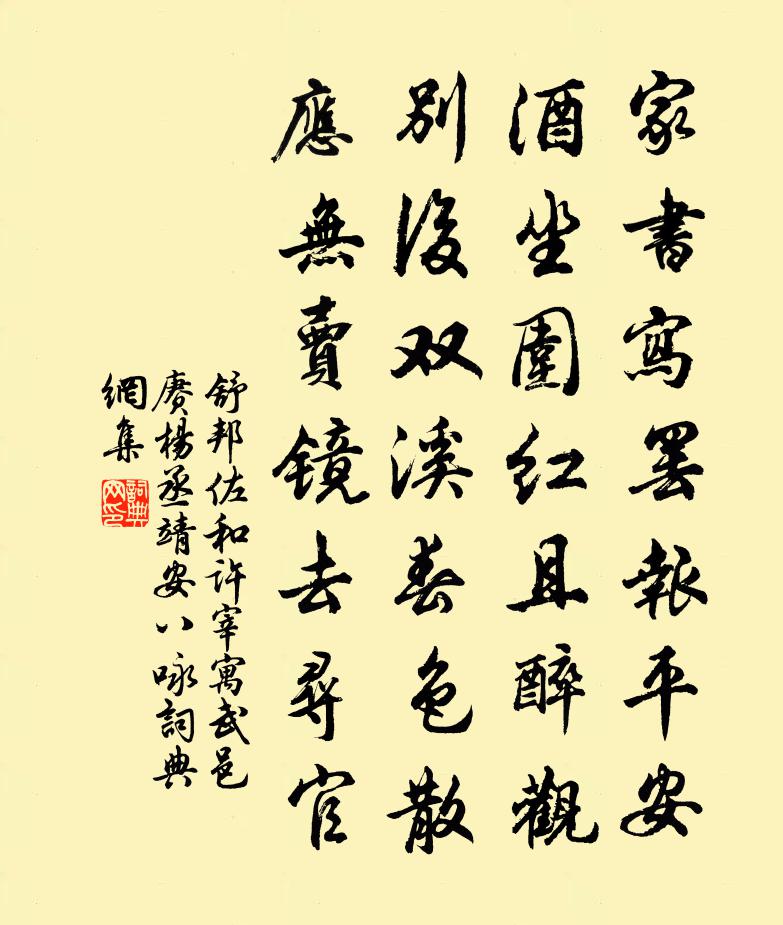 家書寫罷報平安
酒坐圍紅且醉觀
別後双溪春色散
應無賣鏡去尋官
舒邦佐和許宰寓武邑
賡楊丞靖安八咏詞典
網集
詞典網印